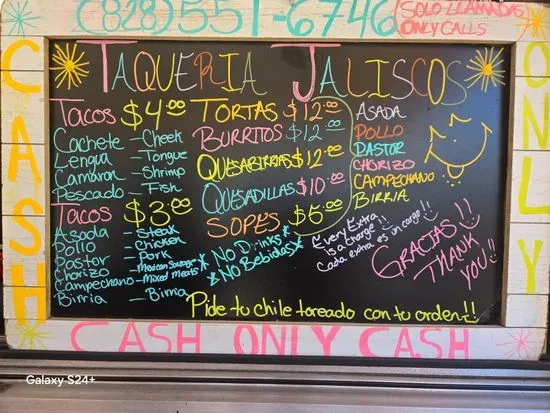 (828) 551-6746
SOLO LLAMADAS
ONLY CALLS
CASH
ONLY
TAQUERIA JALISCOS
Tacos $4.00
Cachete - Cheek
Lengua - Tongue
Camaron - Shrimp
Pescado - Fish
Tacos $3.00
Asada - Steak
Pollo - Chicken
Pastor - Pork
Chorizo - Mexican Sausage
Campechano - Mixed Meats
Birria - Birria
TORTAS $12.00
BURRITOS $12.00
QUESABIRRIAS $12.00
QUESADILLAS $10.00
SOPES $5.00
ASADA
POLLO
PASTOR
CHORIZO
CAMPECHANO
BIRRIA
* No Drinks *
* No Bebidas *
Every Extra
is a charge!!
Cada extra es un cargo!!
GRACIAS!!
THANK
YOU!!
Pide tu chile toreado con tu orden!!
CASH ONLY CASH
Galaxy S24+